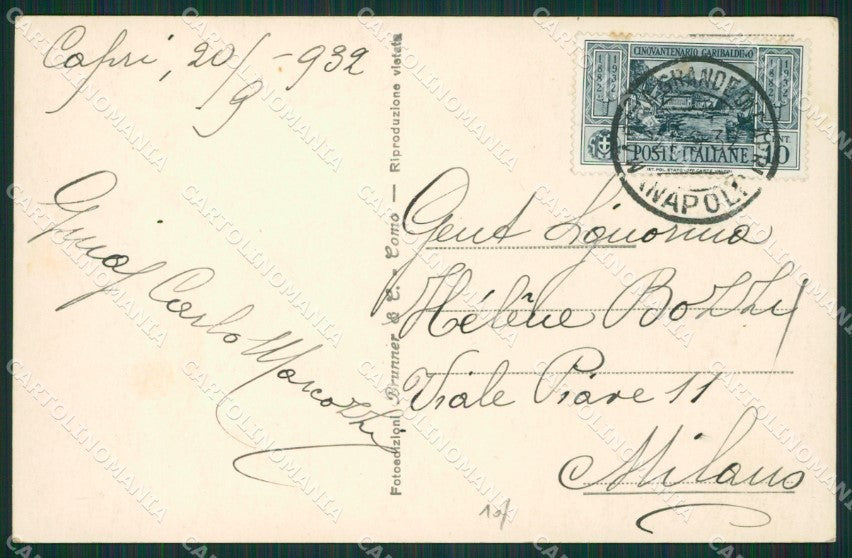 Capri, 20/9 - 932
Carlo Marcozzi
Fotoedizioni Brunner & C. - Como — Riproduzione vietata
CINQUANTENARIO GARIBALDINO
1882
1932
10
POSTE ITALIANE
NAPOLI
Gent Signorina
Hélène Bozzi
Viale Piave 11
Milano
CARTOLINOMANIA